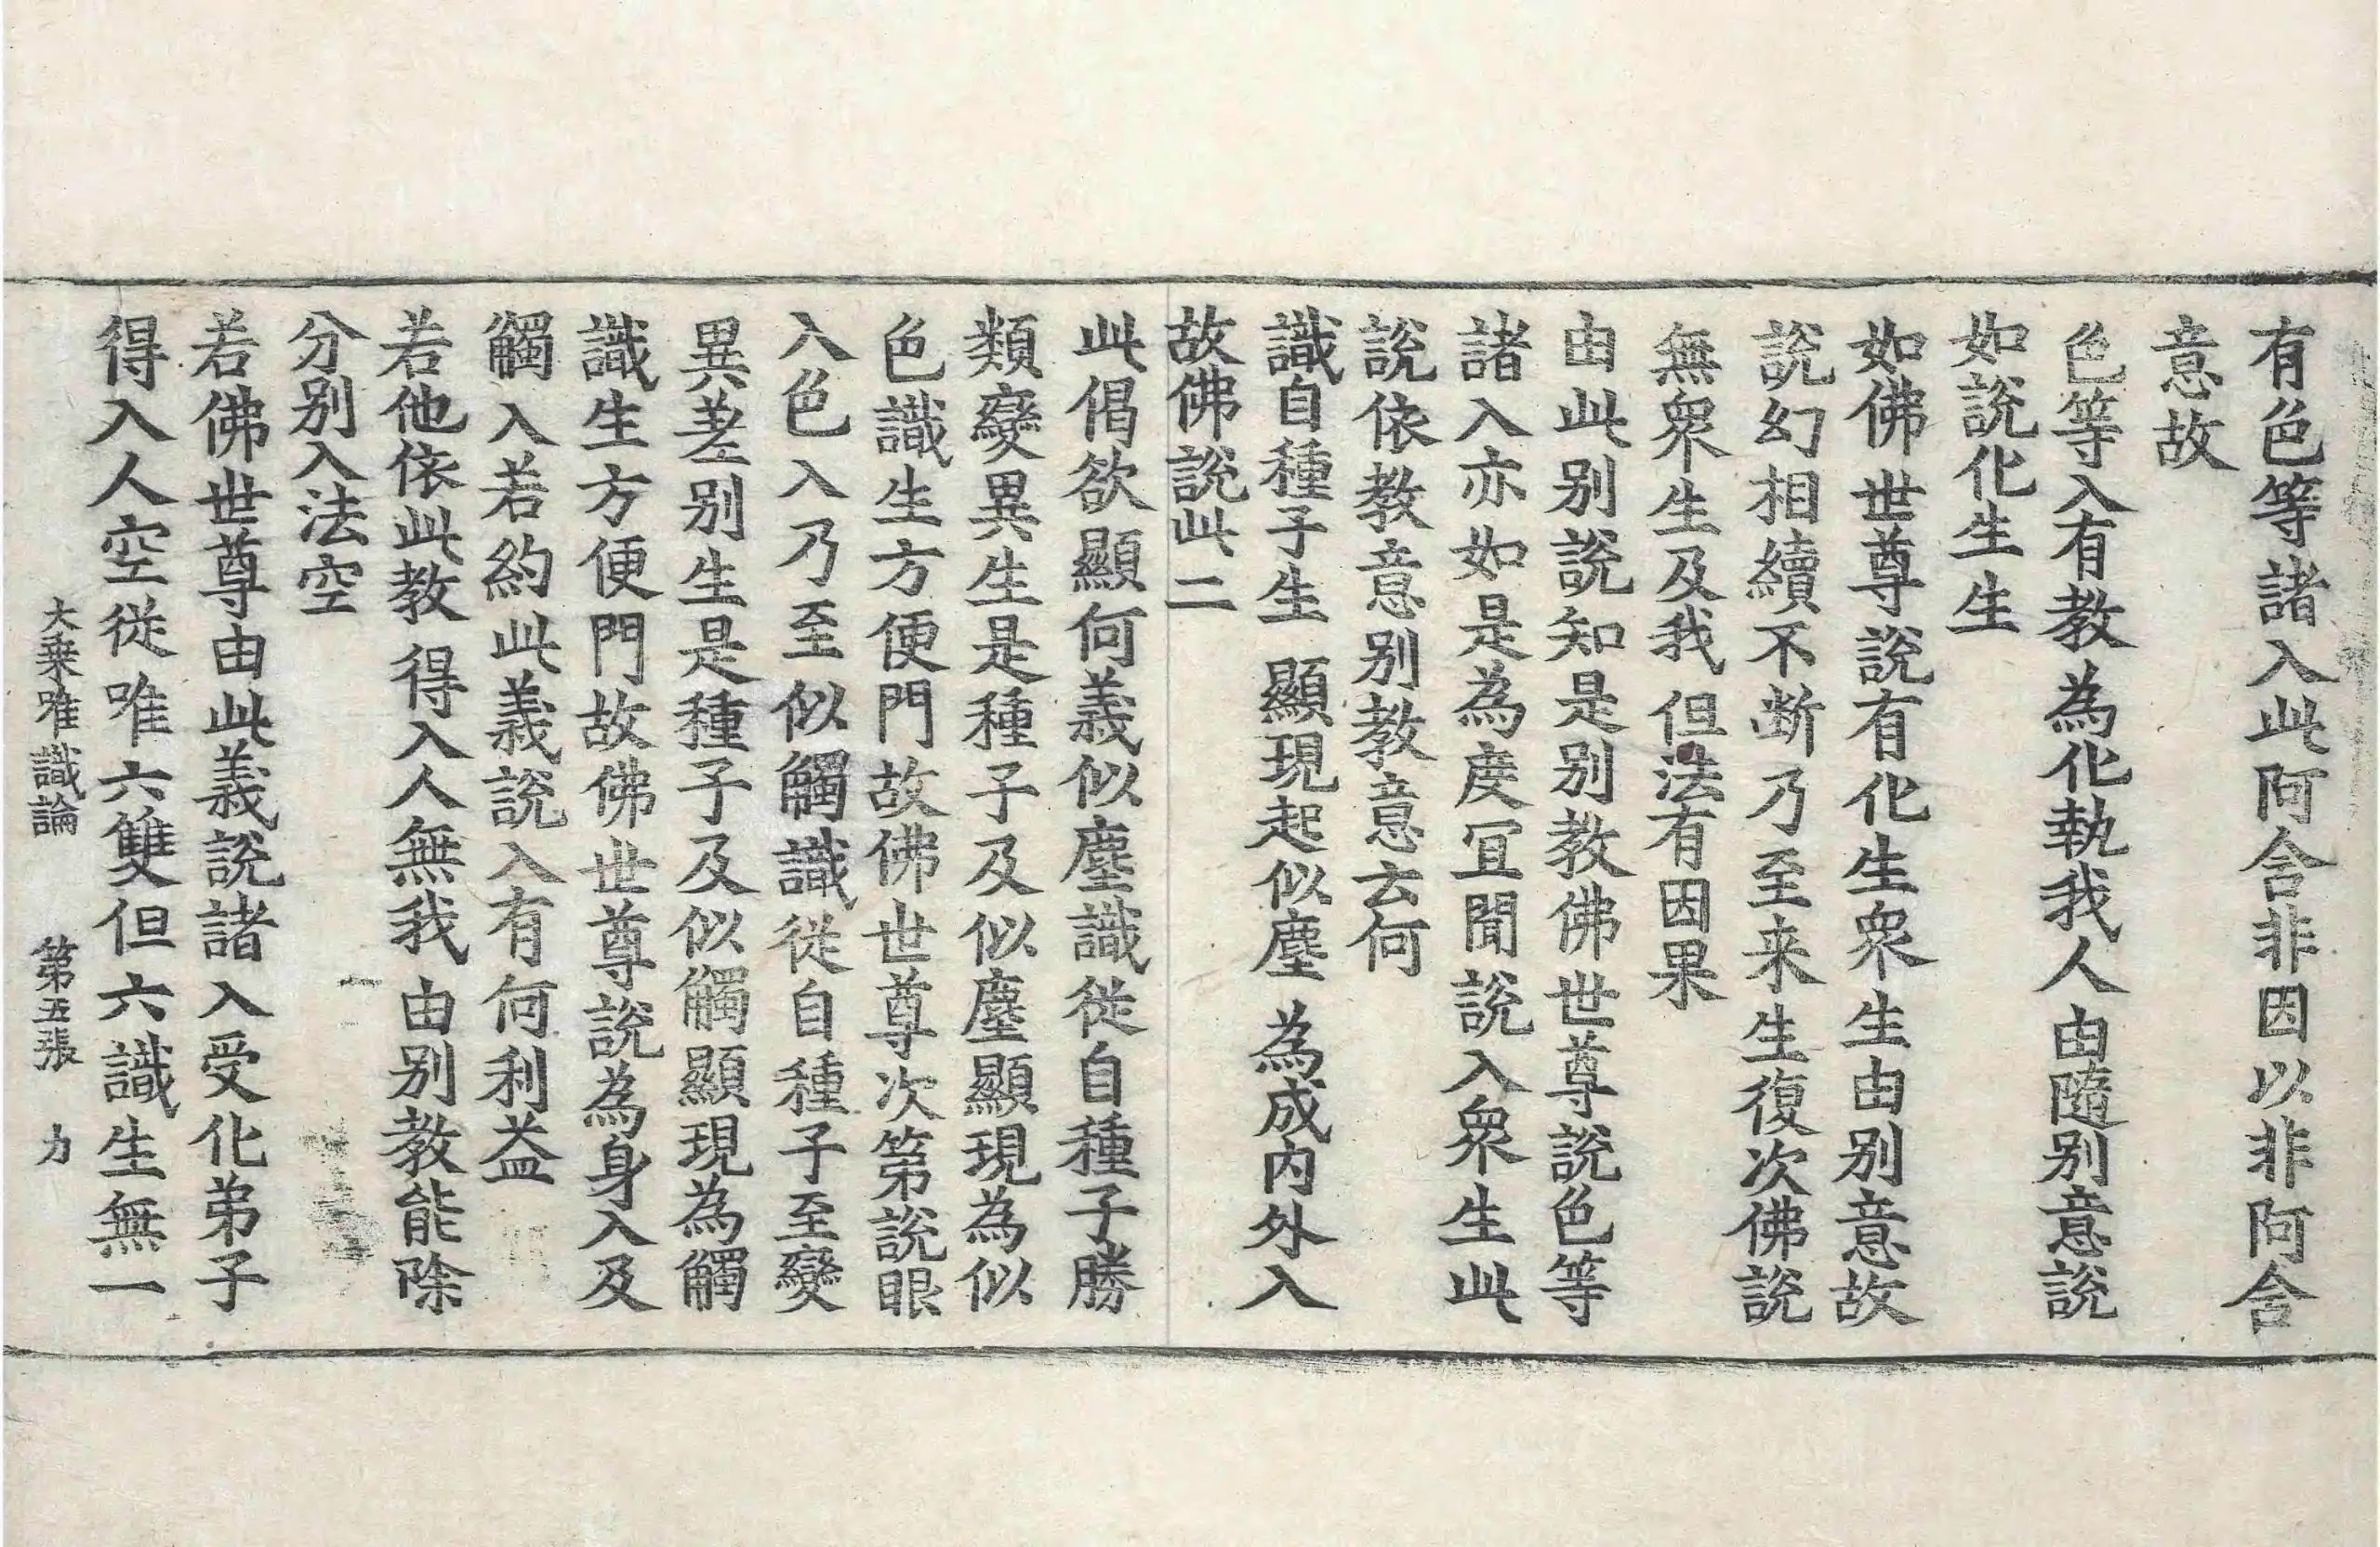 有色等諸入此阿含非因以非阿含
意故
色等入有教為化執我人由隨别意說
如說化生生
如佛世尊說有化生衆生由别意故
說幻相續不断乃至来生復次佛說
無衆生及我但法有因果
由此别說知是别教佛世尊說色等
諸入亦如是為度冝聞說入衆生此
說依教意别教意云何
識自種子生 顯現起似塵 為成内外入
故佛說此二
此偈欲顯何義似塵識從自種子勝
類變異生是種子及似塵顯現為似
色識生方便門故佛世尊次第說眼
入色入乃至似觸識從自種子至變
異差别生是種子及似觸顯現為觸
識生方便門故佛世尊說為身入及
觸入若約此義說入有何利益
若他依此教 得入人無我 由别教能除
分别入法空
若佛世尊由此義說諸入受化弟子
得入人空從唯六雙但六識生無一
大乗唯識論 第五張 力